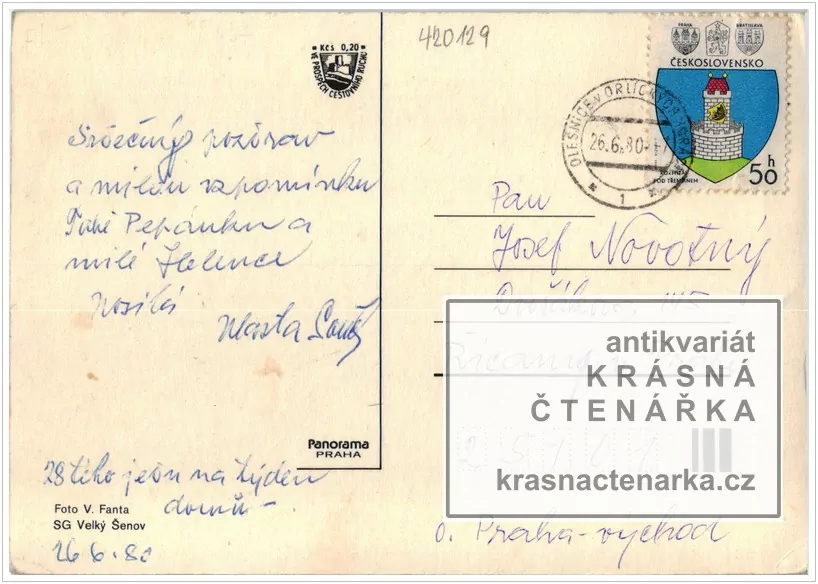 420129
Kčs 0,20
VE PROSPĚCH CESTOVNÍHO RUCHU
PRAHA
BRATISLAVA
ČESKOSLOVENSKO
ROŽMITÁL
POD TŘEMŠÍNEM
50 h
OLEŠNICE V ORLICKÝCH HORÁCH
26.6.80
1
Srdečný pozdrav
a milou vzpomínku
Tobě Pepánku a
milé Helence
posílá
Vlasta
28tého jedu na týden
domů –
26 6. 80
Panorama
PRAHA
Foto V. Fanta
SG Velký Šenov
Pan
Josef Novotný
Říčany u Prahy
25101
o. Praha-východ
antikvariát
KRÁSNÁ
ČTENÁŘKA
krasnactenarka.cz